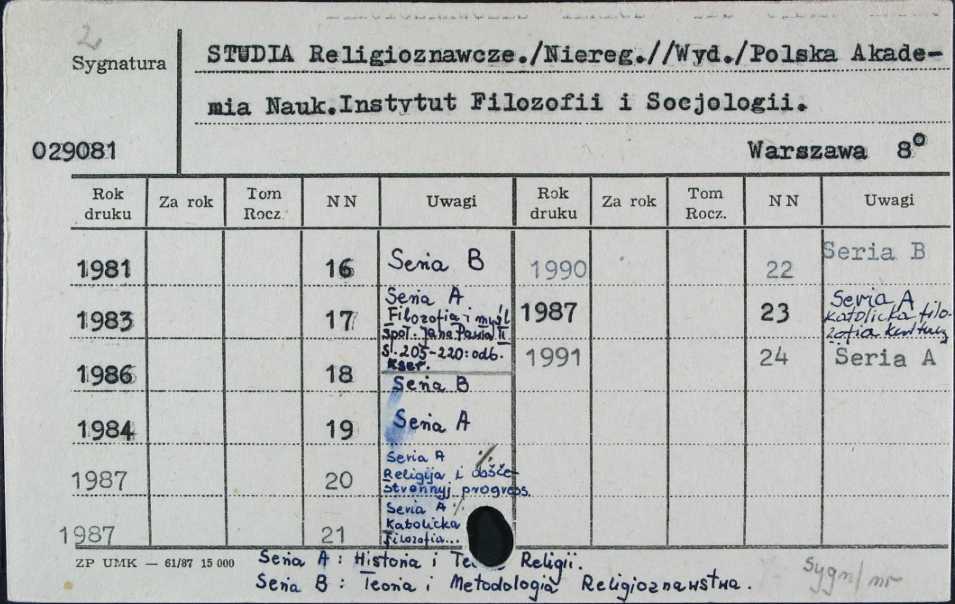 2
Sygnatura
STUDIA Religioznawcze./Niereg.//Wyd./Polska Akade-
mia Nauk.Instytut Filozofii i Socjologii.
029081
Warszawa 8°
Rok druku Za rok Tom Rocz. NN Uwagi Rok druku Za rok Tom Rocz. NN Uwagi
1981 16 Seria B 1990 22 Seria B
1983 17 Seria A
Filozofia i myśl
społ. Jana Pawła II
s. 205-220: odb.
kser.
1987 23 Seria A
Katolicka filo-
zofia kultury
1986 18 Seria B 1991 24 Seria A
1984 19 Seria A
1987 20 Seria A
Religija i obšče-
stvennyj progress.
1987 21 Seria A
Katolicka
Filozofia...
ZP UMK — 61/87 15 000
Seria A : Historia i Religii.
Seria B : Teoria i Metodologia Religioznawstwa.
Sygn/nr